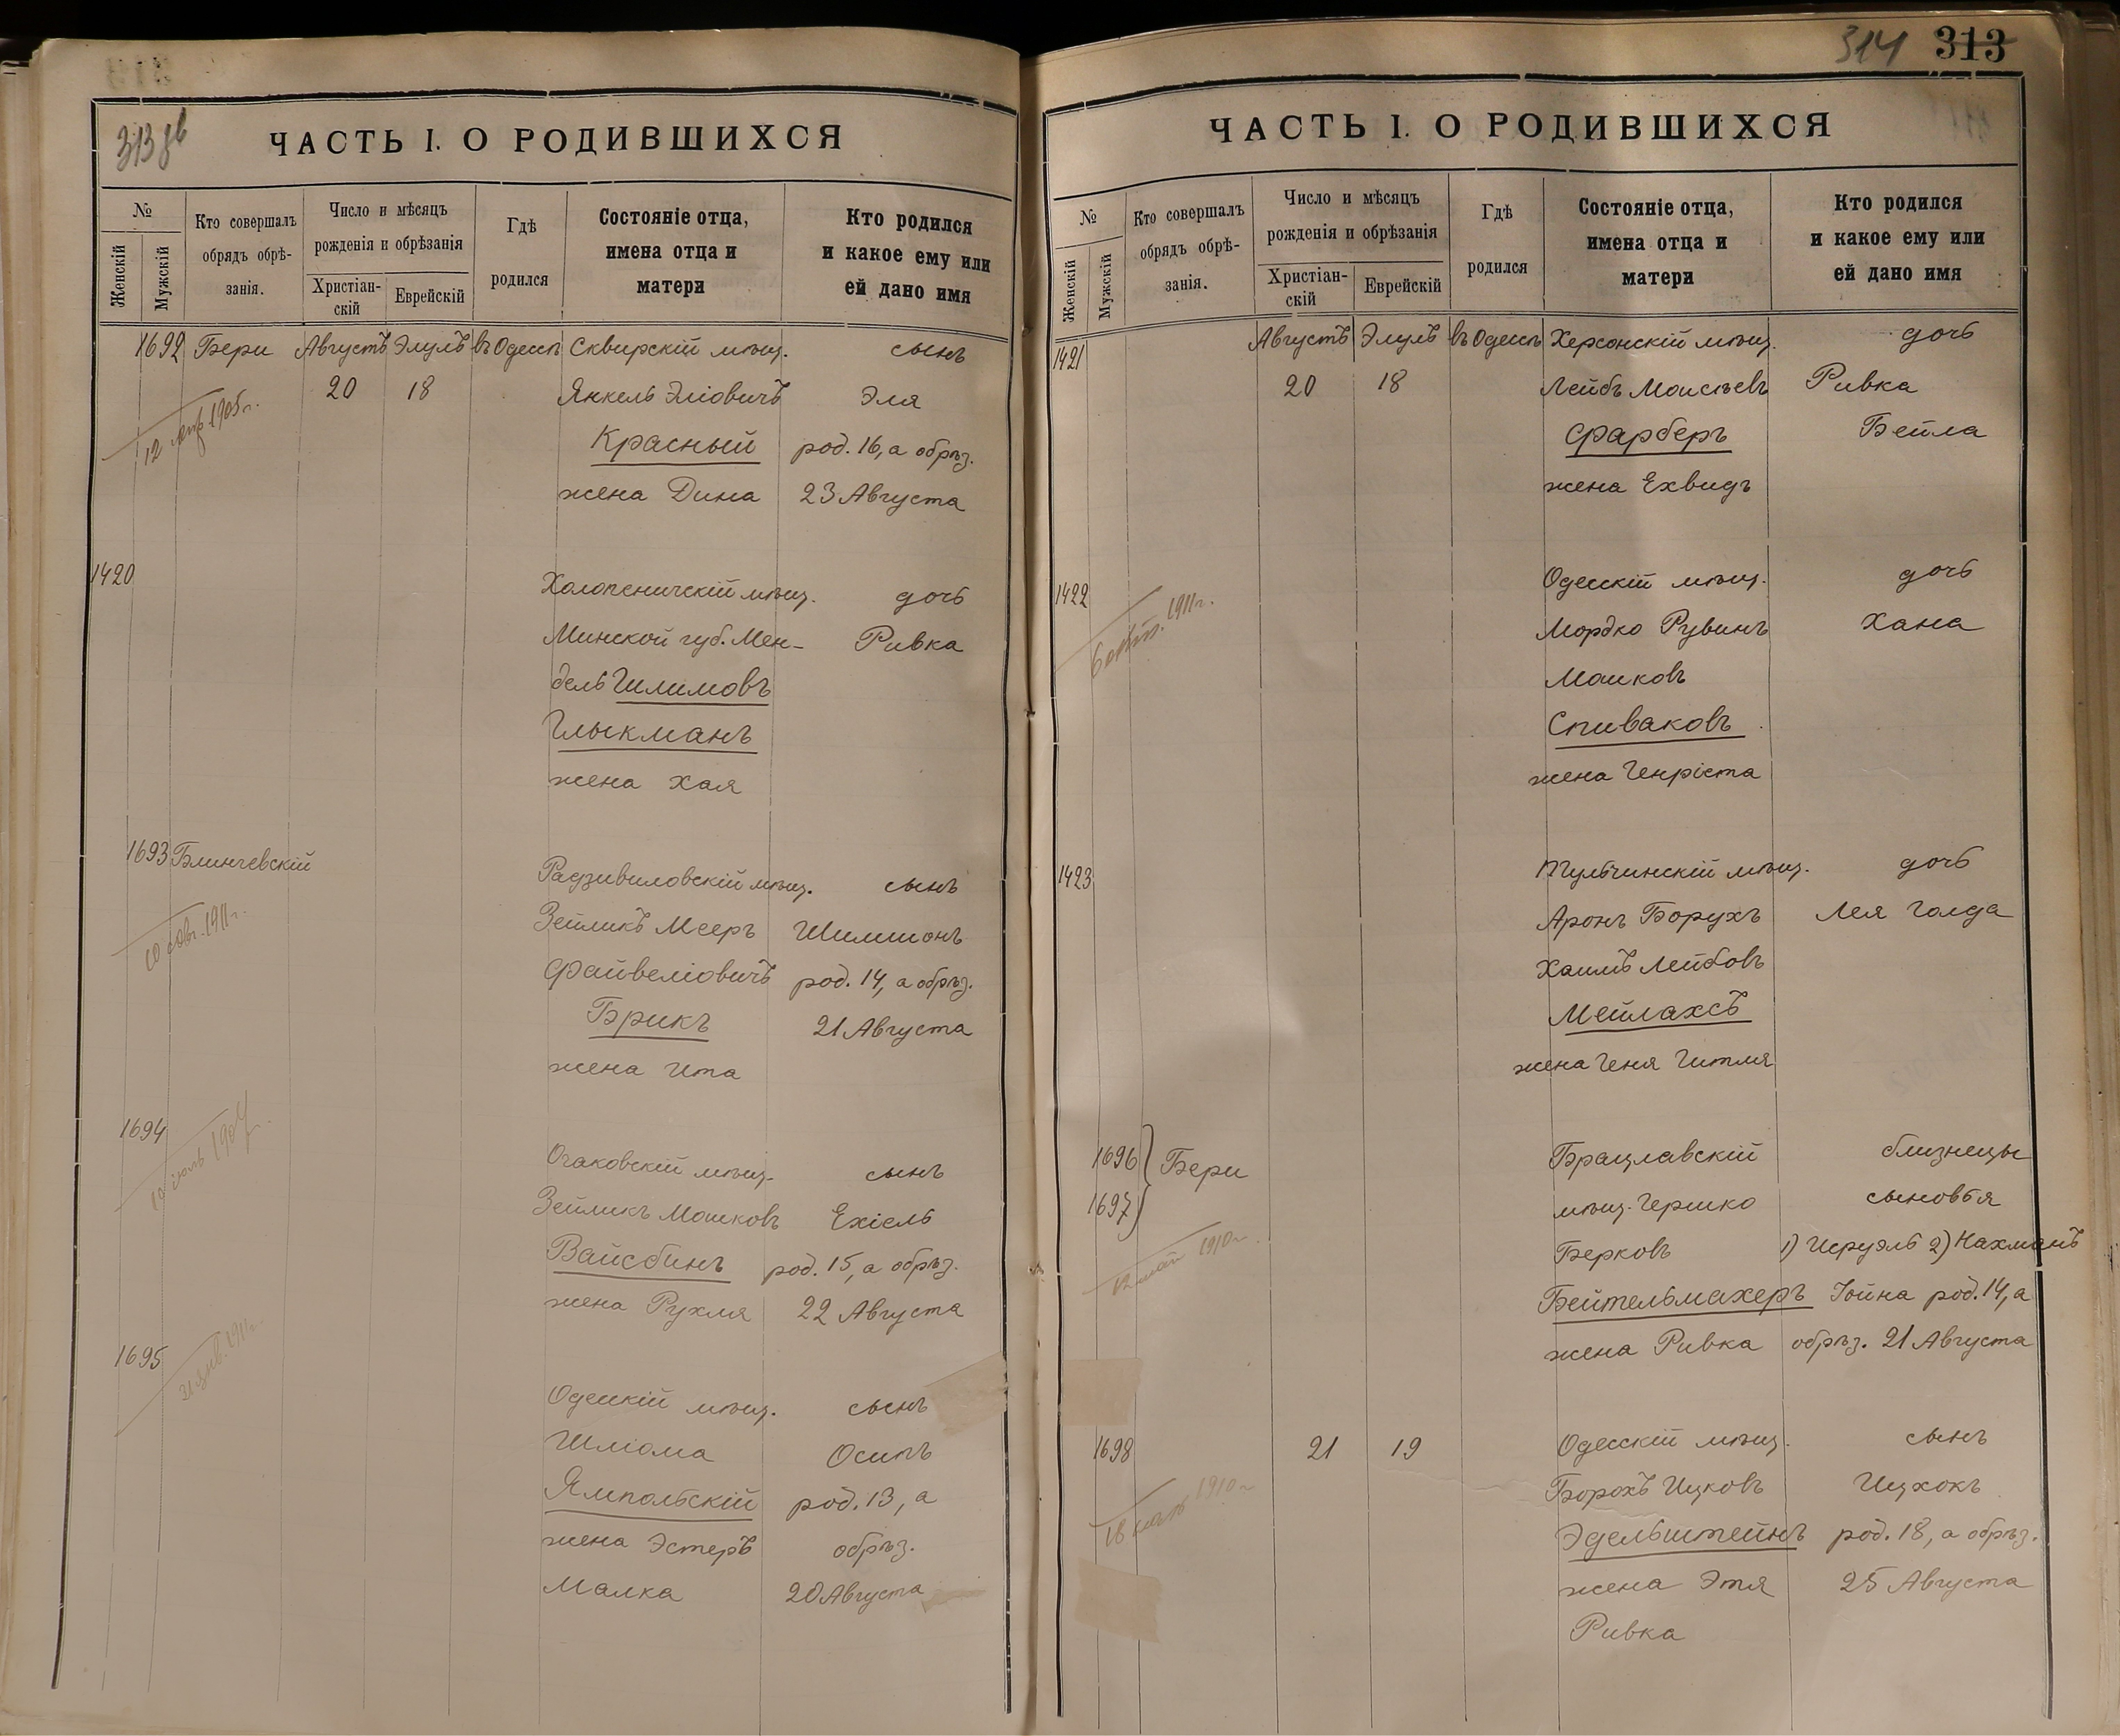 313 об
ЧАСТЬ I. О РОДИВШИХСЯ
№
Женскій
Мужскій
Кто совершалъ
обрядъ обрѣ-
занія.
Число и мѣсяцъ
рожденія и обрѣзанія
Христіан-
скій
Еврейскій
Гдѣ
родился
Состояніе отца,
имена отца и
матери
Кто родился
и какое ему или
ей дано имя
1692 Бери Августъ Элулъ въ Одессѣ Сквирскій мѣщ. сынъ
20 18 Янкель Эліовичъ Эля
12 1905 г.
Красный род. 16, а обрѣз.
жена Дина 23 Августа
1420 Холопеничскій мѣщ. дочь
Минской губ. Мен- Ривка
дель Шлимовъ
Глыкманъ
жена Хая
1693 Блинчевскій Радзивиловскій мѣщ. сынъ
10 1911 г.
Зейликъ Мееръ Шимшонъ
Файвеліовичъ род. 14, а обрѣз.
Брикъ 21 Августа
жена Ита
1694 Очаковскій мѣщ. сынъ
10 іюль 1907
Зейликъ Мошковъ Ехіель
Вайсбинъ род. 15, а обрѣз.
жена Рухля 22 Августа
1695 Одесскій мѣщ. сынъ
21 янв. 1911 г.
Шліома Осипъ
Ямпольскій род. 13, а
жена Эстеръ обрѣз.
Малка 20 Августа
314 313
ЧАСТЬ I. О РОДИВШИХСЯ
№
Женскій
Мужскій
Кто совершалъ
обрядъ обрѣ-
занія.
Число и мѣсяцъ
рожденія и обрѣзанія
Христіан-
скій
Еврейскій
Гдѣ
родился
Состояніе отца,
имена отца и
матери
Кто родился
и какое ему или
ей дано имя
1421 Августъ Элулъ въ Одессѣ Херсонскій мѣщ. дочь
20 18 Лейбъ Моисѣевъ Ривка
Фарберъ Бейла
жена Ехвидъ
1422 Одесскій мѣщ. дочь
6 1911 г.
Мордко Рувинъ Хана
Мошковъ
Спиваковъ
жена Генріета
1423 Тульчинскій мѣщ. дочь
Аронъ Борухъ Лея Голда
Хаимъ Лейбовъ
Мейлахсъ
жена Геня Гитля
1696 Бери Брацлавскій близнецы
1697 мѣщ. Гершко сыновья
12 май 1910 г.
Берковъ 1) Исруэль 2) Нахманъ
Бейтельмахеръ Іойна род. 14, а
жена Ривка обрѣз. 21 Августа
1698 21 19 Одесскій мѣщ. сынъ
18 1910 г.
Борохъ Ицковъ Ицхокъ
Эдельштейнъ род. 18, а обрѣз.
жена Этя 25 Августа
Ривка